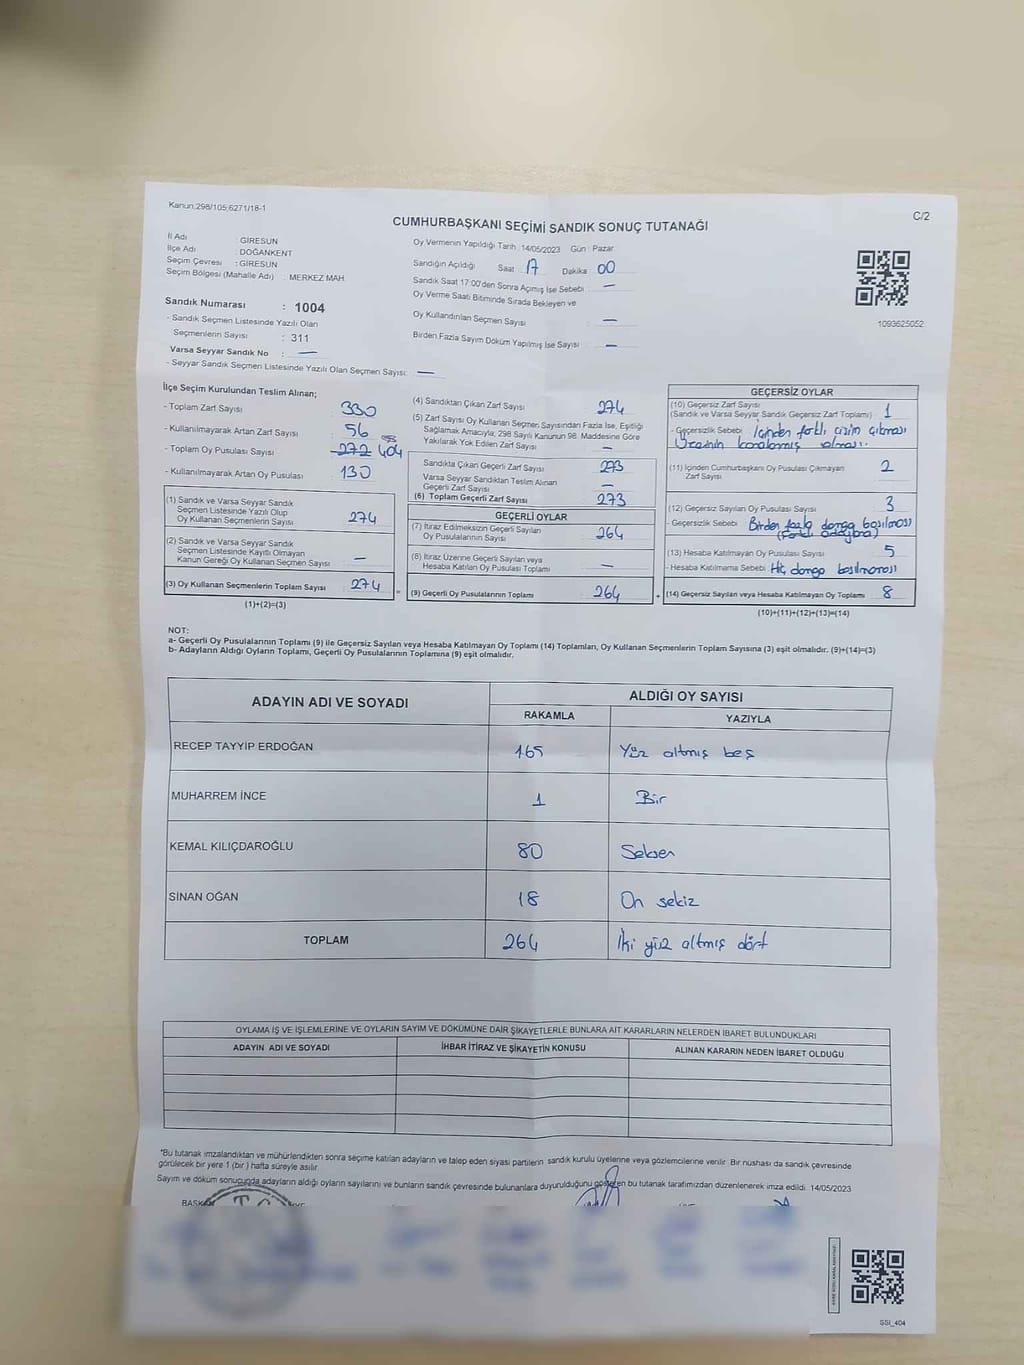 Kanun:298/105;6271/18-1
C/2
CUMHURBAŞKANI SEÇİMİ SANDIK SONUÇ TUTANAĞI
İl Adı : GİRESUN
İlçe Adı : DOĞANKENT
Seçim Çevresi : GİRESUN
Seçim Bölgesi (Mahalle Adı) : MERKEZ MAH.
Sandık Numarası : 1004
- Sandık Seçmen Listesinde Yazılı Olan
Seçmenlerin Sayısı : 311
Varsa Seyyar Sandık No : —
- Seyyar Sandık Seçmen Listesinde Yazılı Olan Seçmen Sayısı: —
Oy Vermenin Yapıldığı Tarih :14/05/2023 Gün : Pazar
Sandığın Açıldığı Saat 17 Dakika 00
Sandık Saat 17:00'den Sonra Açmış İse Sebebi : —
Oy Verme Saati Bitiminde Sırada Bekleyen ve
Oy Kullandırılan Seçmen Sayısı : —
Birden Fazla Sayım Döküm Yapılmış İse Sayısı : —
1093625052
İlçe Seçim Kurulundan Teslim Alınan;
- Toplam Zarf Sayısı 330
- Kullanılmayarak Artan Zarf Sayısı 56
- Toplam Oy Pusulası Sayısı 272 404
- Kullanılmayarak Artan Oy Pusulası 130
(1) Sandık ve Varsa Seyyar Sandık
Seçmen Listesinde Yazılı Olup
Oy Kullanan Seçmenlerin Sayısı 274
(2) Sandık ve Varsa Seyyar Sandık
Seçmen Listesinde Kayıtlı Olmayan
Kanun Gereği Oy Kullanan Seçmen Sayısı —
(3) Oy Kullanan Seçmenlerin Toplam Sayısı 274 =
(1)+(2)=(3)
(4) Sandıktan Çıkan Zarf Sayısı 274
(5) Zarf Sayısı Oy Kullanan Seçmen Sayısından Fazla İse, Eşitliği
Sağlamak Amacıyla, 298 Sayılı Kanunun 98. Maddesine Göre
Yakılarak Yok Edilen Zarf Sayısı —
Sandıkta Çıkan Geçerli Zarf Sayısı 273
Varsa Seyyar Sandıktan Teslim Alınan
Geçerli Zarf Sayısı —
(6) Toplam Geçerli Zarf Sayısı 273
GEÇERLİ OYLAR
(7) İtiraz Edilmeksizin Geçerli Sayılan
Oy Pusulalarının Sayısı 264
(8) İtiraz Üzerine Geçerli Sayılan veya
Hesaba Katılan Oy Pusulası Toplamı —
(9) Geçerli Oy Pusulalarının Toplamı 264 +
GEÇERSİZ OYLAR
(10) Geçersiz Zarf Sayısı
(Sandık ve Varsa Seyyar Sandık Geçersiz Zarf Toplamı) 1
- Geçersizlik Sebebi : İçinden farklı çizim çıkması
Üzerinin karalanmış olması.
(11) İçinden Cumhurbaşkanı Oy Pusulası Çıkmayan
Zarf Sayısı 2
(12) Geçersiz Sayılan Oy Pusulası Sayısı 3
- Geçersizlik Sebebi : Birden fazla damga basılması
(13) Hesaba Katılmayan Oy Pusulası Sayısı 5
- Hesaba Katılmama Sebebi : Hiç damga basılmaması
(14) Geçersiz Sayılan veya Hesaba Katılmayan Oy Toplamı 8
(10)+(11)+(12)+(13)=(14)
NOT:
a- Geçerli Oy Pusulalarının Toplamı (9) ile Geçersiz Sayılan veya Hesaba Katılmayan Oy Toplamı (14) Toplamları, Oy Kullanan Seçmenlerin Toplam Sayısına (3) eşit olmalıdır. (9)+(14)=(3)
b- Adayların Aldığı Oyların Toplamı, Geçerli Oy Pusulalarının Toplamına (9) eşit olmalıdır.
ADAYIN ADI VE SOYADI
ALDIĞI OY SAYISI
RAKAMLA YAZIYLA
RECEP TAYYİP ERDOĞAN 165 Yüz altmış beş
MUHARREM İNCE 1 Bir
KEMAL KILIÇDAROĞLU 80 Seksen
SİNAN OĞAN 18 On sekiz
TOPLAM 264 İki yüz altmış dört
OYLAMA İŞ VE İŞLEMLERİNE VE OYLARIN SAYIM VE DÖKÜMÜNE DAİR ŞİKAYETLERLE BUNLARA AİT KARARLARIN NELERDEN İBARET BULUNDUKLARI
ADAYIN ADI VE SOYADI İHBAR İTİRAZ VE ŞİKAYETİN KONUSU ALINAN KARARIN NEDEN İBARET OLDUĞU
*Bu tutanak imzalandıktan ve mühürlendikten sonra seçime katılan adayların ve talep eden siyasi partilerin sandık kurulu üyelerine veya gözlemcilerine verilir. Bir nüshası da sandık çevresinde
görülecek bir yere 1 (bir ) hafta süreyle asılır.
Sayım ve döküm sonucunda adayların aldığı oyların sayılarını ve bunların sandık çevresinde bulunanlara duyurulduğunu gösteren bu tutanak tarafımızdan düzenlenerek imza edildi. 14/05/2023
T.C.
SSI_404